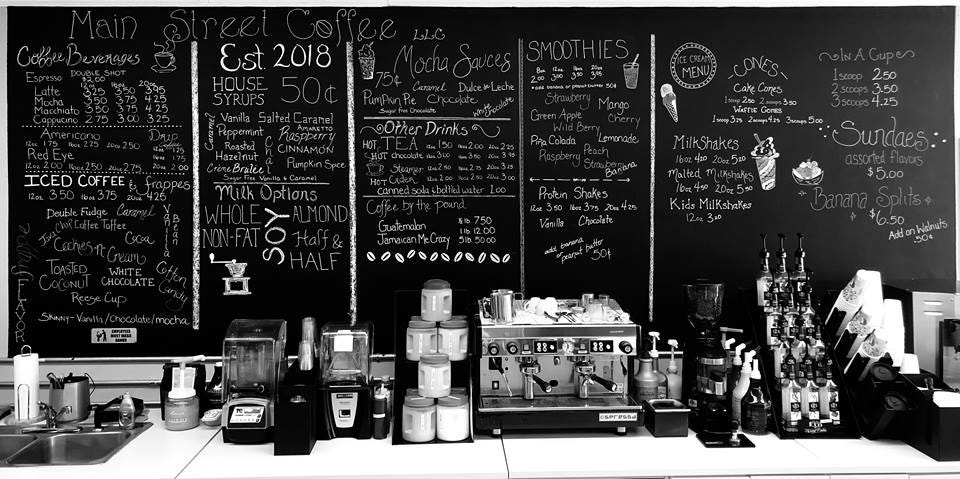 Main Street Coffee LLC
Coffee Beverages
Espresso DOUBLE SHOT $2.00
12oz 16oz 20oz
Latte 3.25 3.50 3.95
Mocha 3.50 3.75 4.25
Macchiato 3.50 3.75 4.25
Cappucino 2.75 3.00 3.25
Americano
12oz 1.75 16oz 2.25 20oz 2.50
Drip
Red Eye
12oz 2.00 16oz 2.50 20oz 2.75
ICED COFFEE & frappes
12oz 3.50 16oz 3.75 20oz 4.25
Double Fudge Caramel
Java Chip Coffee Toffee
Cookies n Cream Cocoa
TOASTED COCONUT
WHITE CHOCOLATE
Reese Cup
Vanilla Bean
Cotton Candy
Frappe FLAVORS
SKINNY-Vanilla/Chocolate/mocha
EMPLOYEES MUST WASH HANDS
Est. 2018
HOUSE SYRUPS 50¢
Vanilla Salted Caramel
Caramel
Peppermint
AMARETTO
Raspberry
Roasted Hazelnut
Chai
CINNAMON
Créme Brulee
Pumpkin Spice
Sugar Free Vanilla & Caramel
Milk Options
WHOLE SOY ALMOND
NON-FAT Half & HALF
Mocha Sauces
75¢ Caramel Dulce de Leche
Pumpkin Pie Chocolate White Chocolate
Sugar Free Chocolate
Other Drinks
HOT TEA 12oz 1.50 16oz 2.00 20oz 2.25
HOT Chocolate 12oz 3.00 16oz 3.25 20oz 3.50
Steamer 12oz 2.50 16oz 2.75 20oz 3.00
HOT Cider 12oz 2.00 16oz 2.25 20oz 2.50
Canned soda & bottled water 1.00
Coffee by the pound
Guatemalan ½ lb 7.50
1 lb 12.00
Jamaican Me Crazy 5 lb 50.00
SMOOTHIES
8oz 12oz 16oz 20oz
2.00 3.00 3.50 3.95
+ add banana or peanut butter 50¢
Strawberry Mango
Green Apple Cherry
Wild Berry
Pina Colada Lemonade
Raspberry Peach
Strawberry Banana
Protein Shakes
12oz 3.50 16oz 3.75 20oz 4.25
Vanilla Chocolate
add banana or peanut butter 50¢
ICE CREAM MENU
CONES
Cake Cones
1 scoop 2.50 2 scoops 3.50
Waffle Cones
1 scoop 3.25 2 scoops 4.25 3 scoops 5.00
MilkShakes
16oz 4.20 20oz 5.20
Malted Milkshakes
16oz 4.50 20oz 5.50
Kids Milkshakes
12oz 3.20
IN A Cup
1 scoop 2.50
2 scoops 3.50
3 scoops 4.25
Sundaes
assorted flavors
$5.00
Banana Splits
$6.50
Add on Walnuts .50¢
espresso